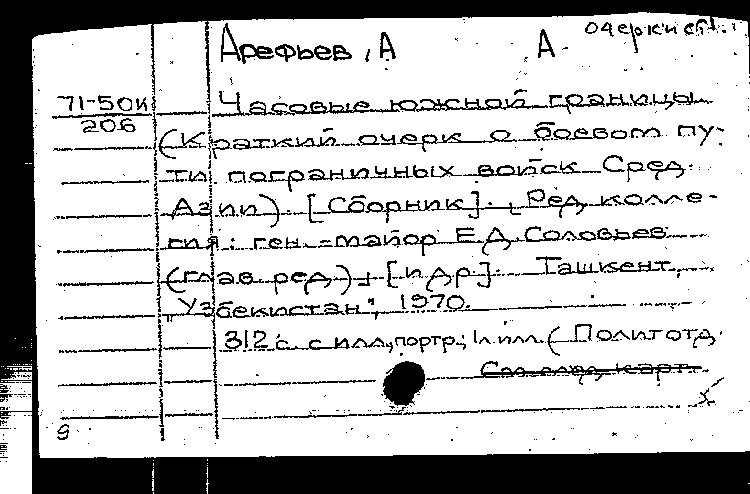 Арефьев, А А очеркист.
71-50к Часовые южной границы
206 (Краткий очерк о боевом пу-
ти пограничных войск Сред.
Азии). [Сборник]. Ред. колле-
гия: ген.-майор Е.Д. Соловьев
(глав. ред.) [и др.]. Ташкент,
"Узбекистан", 1970.
312 с. с илл., портр.; 1 л. илл. (Политотд.
См. след. карт.
9